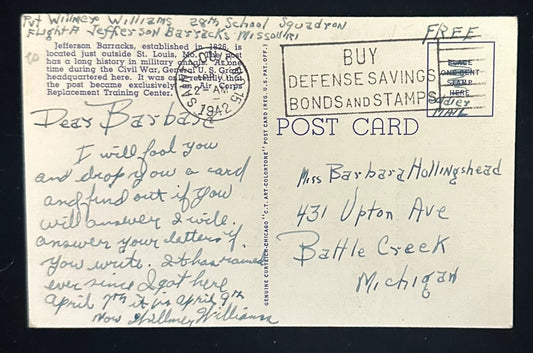 Pvt Willmer Williams 28th School Squadron
Flight A Jefferson Barracks Missouri
Jefferson Barracks, established in 1826, is
located just outside St. Louis, Mo. The post
has a long history in military annals. At one
time during the Civil War, General U. S. Grant
headquartered here. It was only recently that
the post became exclusively an Air Corps
Replacement Training Center.
Dear Barbara
I will fool you
and drop you a card
and find out if you
will answer I will
answer your letters if
you write. It has rained
ever since I got here
April 7th it is April 9th
Now Willmer Williams
GENUINE CURTEICH-CHICAGO "C.T. ART-COLORTONE" POST CARD (REG. U.S. PAT. OFF.)
APR
1942
BUY
DEFENSE SAVINGS
BONDS AND STAMPS
FREE
PLACE
ONE CENT
STAMP
HERE
Soldier
MAIL
POST CARD
Miss Barbara Hollingshead
431 Upton Ave
Battle Creek
Michigan